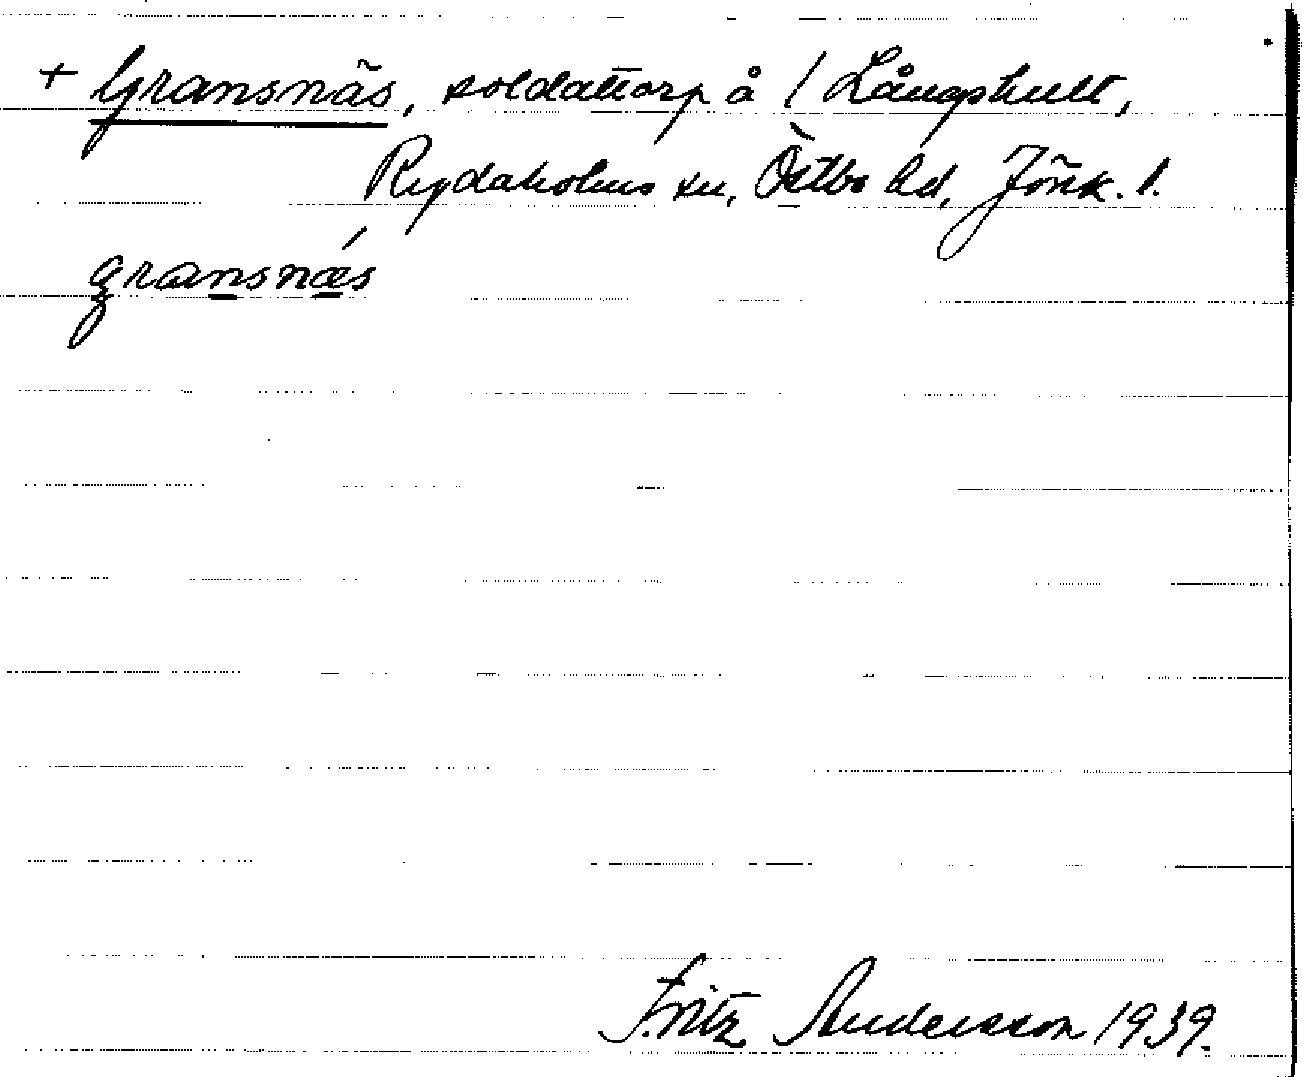 + Gransnäs, soldattorp å / Långshult,
Rydaholms sn, Östbo hd, Jönk. l.
gransnǽs
Fritz Andersson 1939.